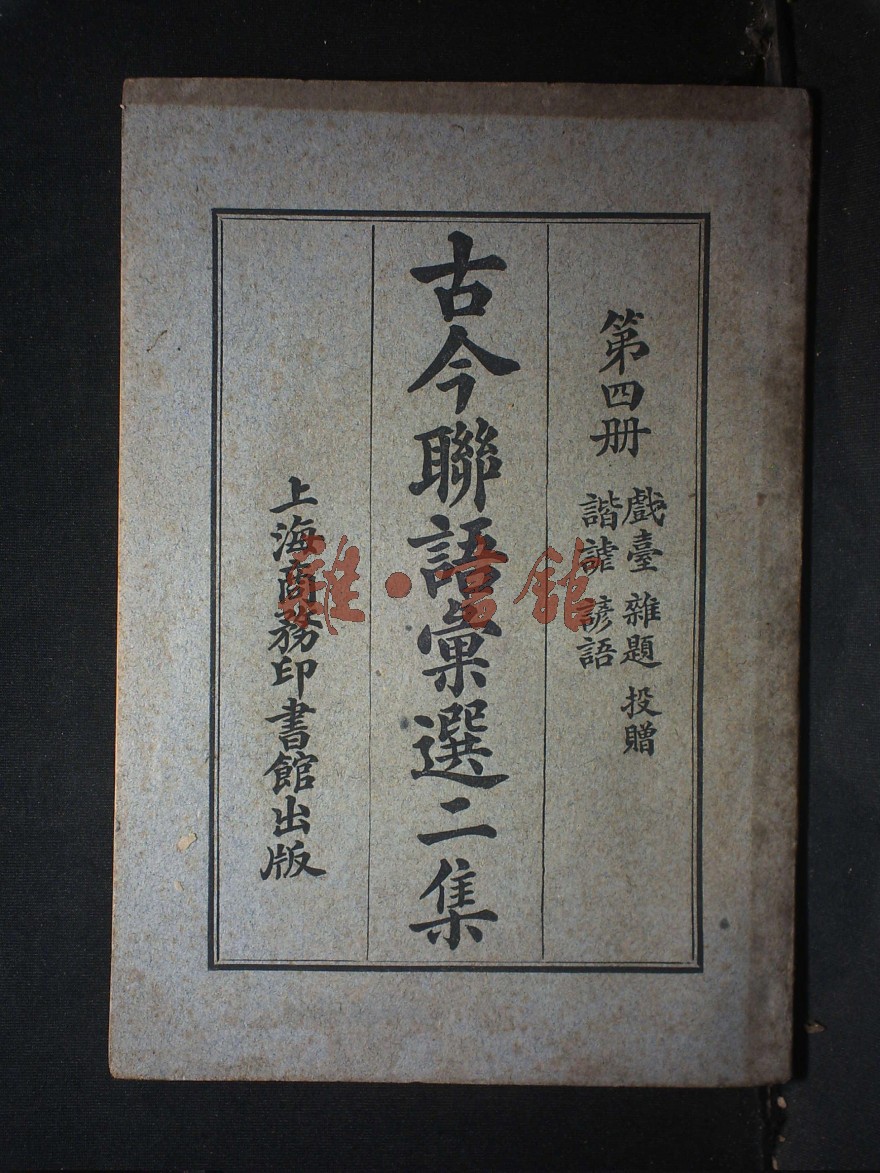 第四册
戲臺 雜題 投贈
諧謔 諺語
古今聯語彙選二集
上海商務印書館出版
雜·書館